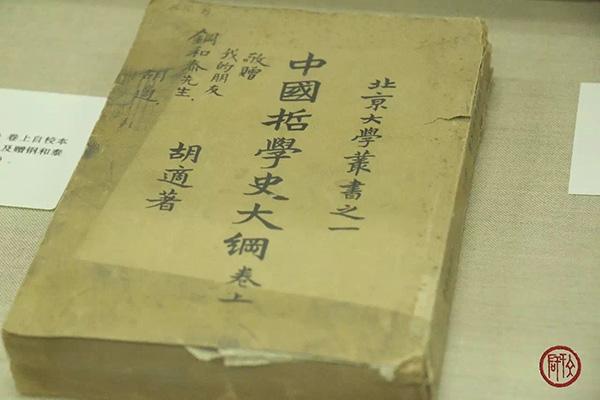 北京大學叢書之一
中國哲學史大綱卷上
胡適著
敬贈
我的朋友
鋼和泰先生.
胡適.
卷上自校本
及赠钢和泰